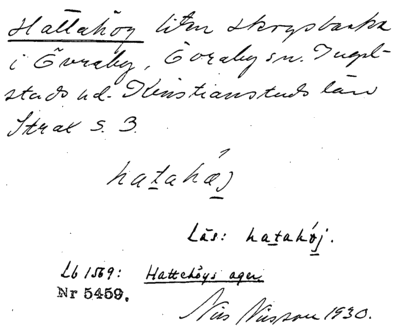 Hattahög liten skogsbacke
i Övraby, Övraby sn. Ingel-
stads hd. Kristianstads län
Strax S. 3.
hatahæj
Läs: hatahöj.
Lb 1569: Hattehöys ager
Nr 5459.
Nils Nilsson 1930.